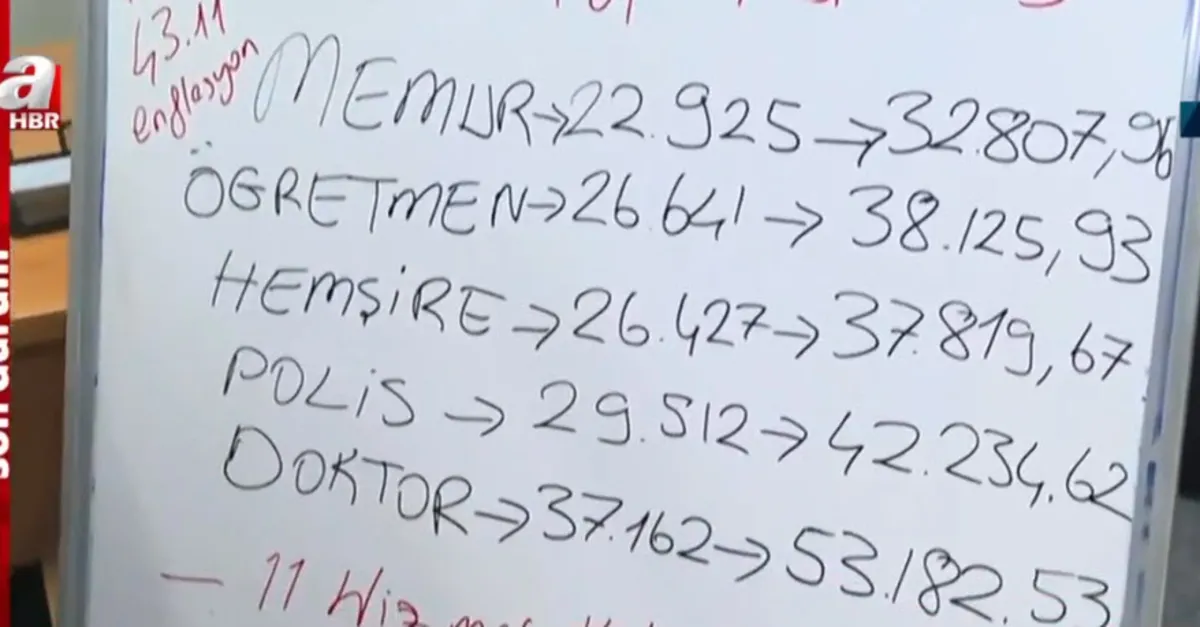 43.11
enflasyon
MEMUR→22.925→32.807,96
ÖGRETMEN→26.641→38.125,93
HEMŞİRE→26.427→37.819,67
POLİS→29.512→42.234.62
DOKTOR→37.162→53.182.53
- 11 Hiz
a
HBR
son durum